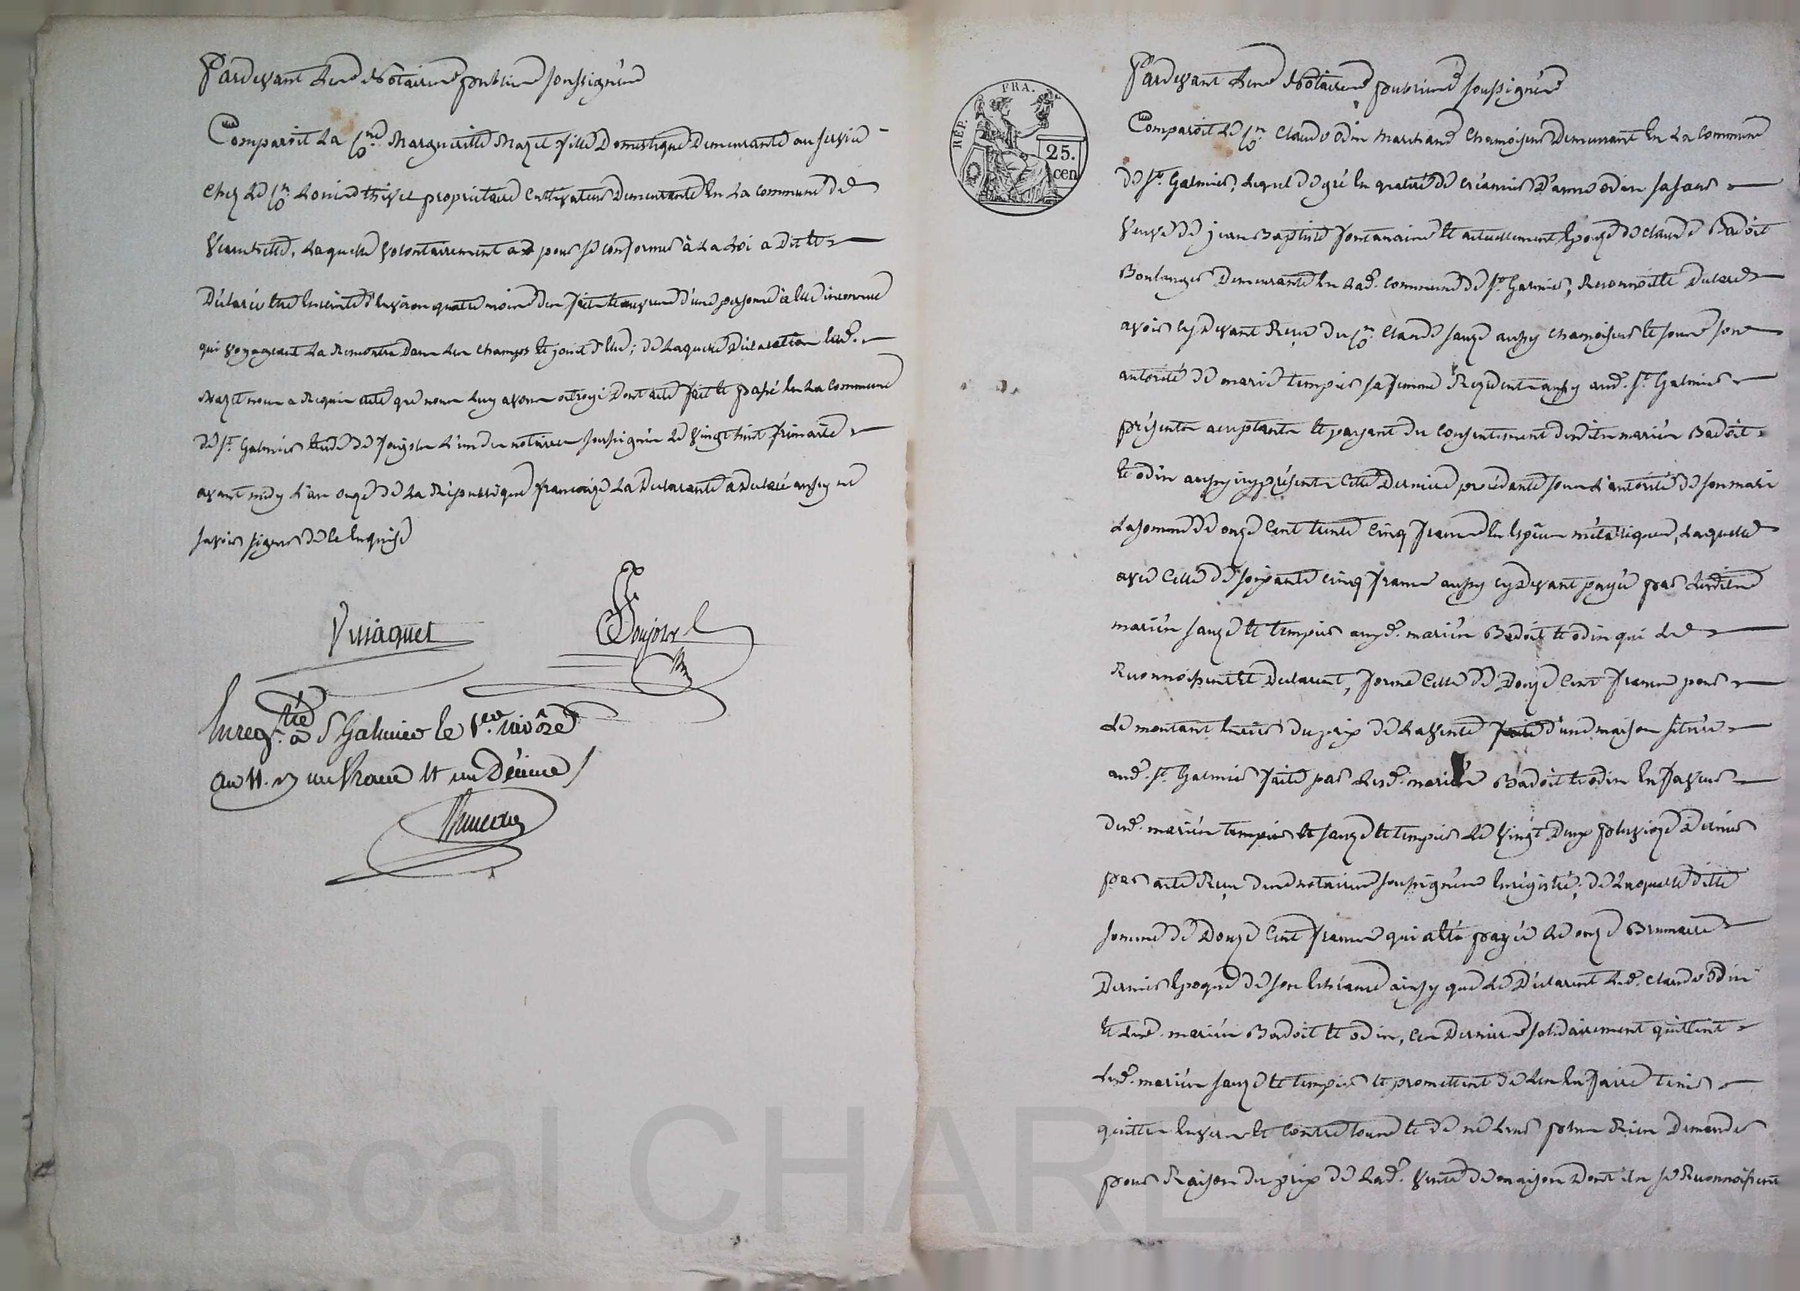 Pardevant Les Notaires publics soussignés
Comparoit La C.ne Marguerite Mazet fille Domestique Demeurante au service
chez Le C.n Thivet propriétaire Cultivateur Demeurante En La Commune de
Laquelle volontairement et pour se conformer à La Loi a dit et
Déclaré être Enceinte d'Environ quatre mois des faits et œuvres d'une personne à Elle inconnue
qui voyageant La Rencontra Dans Les champs et jouit d'Elle; de Laquelle Déclaration Lad.
Mazet nous a Requis acte que nous Luy avons octroyé Dont acte fait et passé En La Commune
de St. Galmier Etude de Poujolx L'un des notaires soussignés Le vingt huit frimaire
avant midy L'an onze de La République françoise La Déclarante a Déclaré ne
savoir signer de ce Enquise
Vujaquet Poujolx
Enreg.tré à S Galmier le 1.er nivôse
an 11. R un franc et un Décime
RÉP. FRA.
25.
cen
Pardevant Les Notaires publics soussignés
Comparoit Le C.n Claude Odin Marchand Chamoiseur Demeurant En La Commune
de St. Galmier Lequel de gré En qualité de Créancier D'anne odin sa sœur
Veuve de jean Baptiste fontanaine et actuellement Epouse de Claude Badoit
Boulanger Demeurante En Lad. Commune de St. Galmier, Reconnoit et Déclare
avoir cy devant Reçu du C.n Claude Sauze aussy chamoiseur et sous son
autorité de marie tempier sa femme Rezidents aussy aud. St. Galmier
présents acceptants et payant du Consentement desdits mariés Badoit
et odin aussy icy présents Cette Dernière procédante sous L'autorité de son mari
La somme de onze Cent trente Cinq francs En Espèces métalliques, Laquelle
avec Celle de soixante cinq francs aussy cy devant payée par Lesdits
mariés Sauze et tempier auxd. mariés Badoit et odin qui Le
Reconnoissent et Déclarent, forme Celle de Douze Cent francs pour
Le montant Entier du prix de La vente faite d'une maison située
aud. St. Galmier faite par Lesd. mariés Badoit et odin En faveur
desd. mariés tempier et Sauze et tempier Le vingt Deux pluviose Dernier
par acte Reçu desd. notaires soussignés Enregistré; de Laquelle dite
somme de Douze Cent francs qui a Eté payée Le onze Brumaire
Dernier Epoque de son Echéance ainsy que Le Déclarent Led. Claude Odin
et Lesd. mariés Badoit et odin, Ces Derniers solidairement quittent
Lesd. mariés Sauze et tempier et promettent de Les En faire tenir
quittes Envers et Contre tous et de ne Leur plus Rien Demander
pour Raison du prix de Lad. vente de maison Dont ils se Reconnoissent
Pascal CHAREYRON